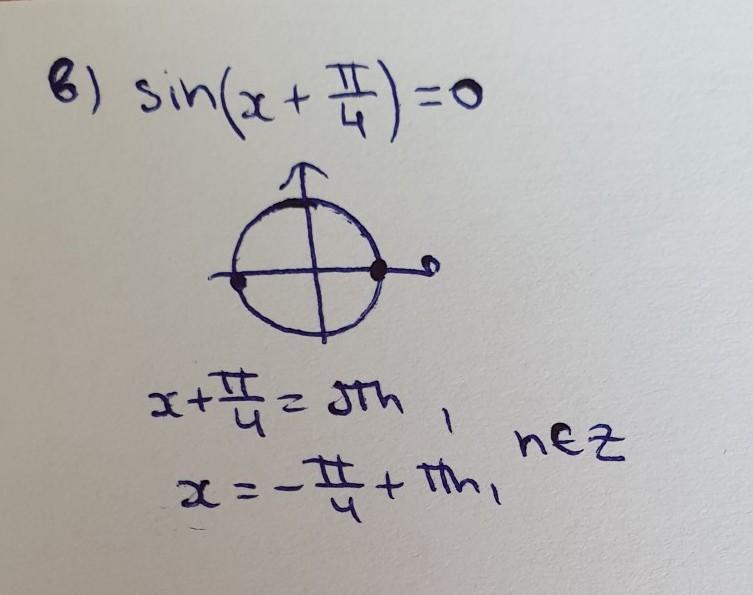 в) sin(x + π/4) = 0
0
x + π/4 = πn,
n ∈ Z
x = -π/4 + πn,